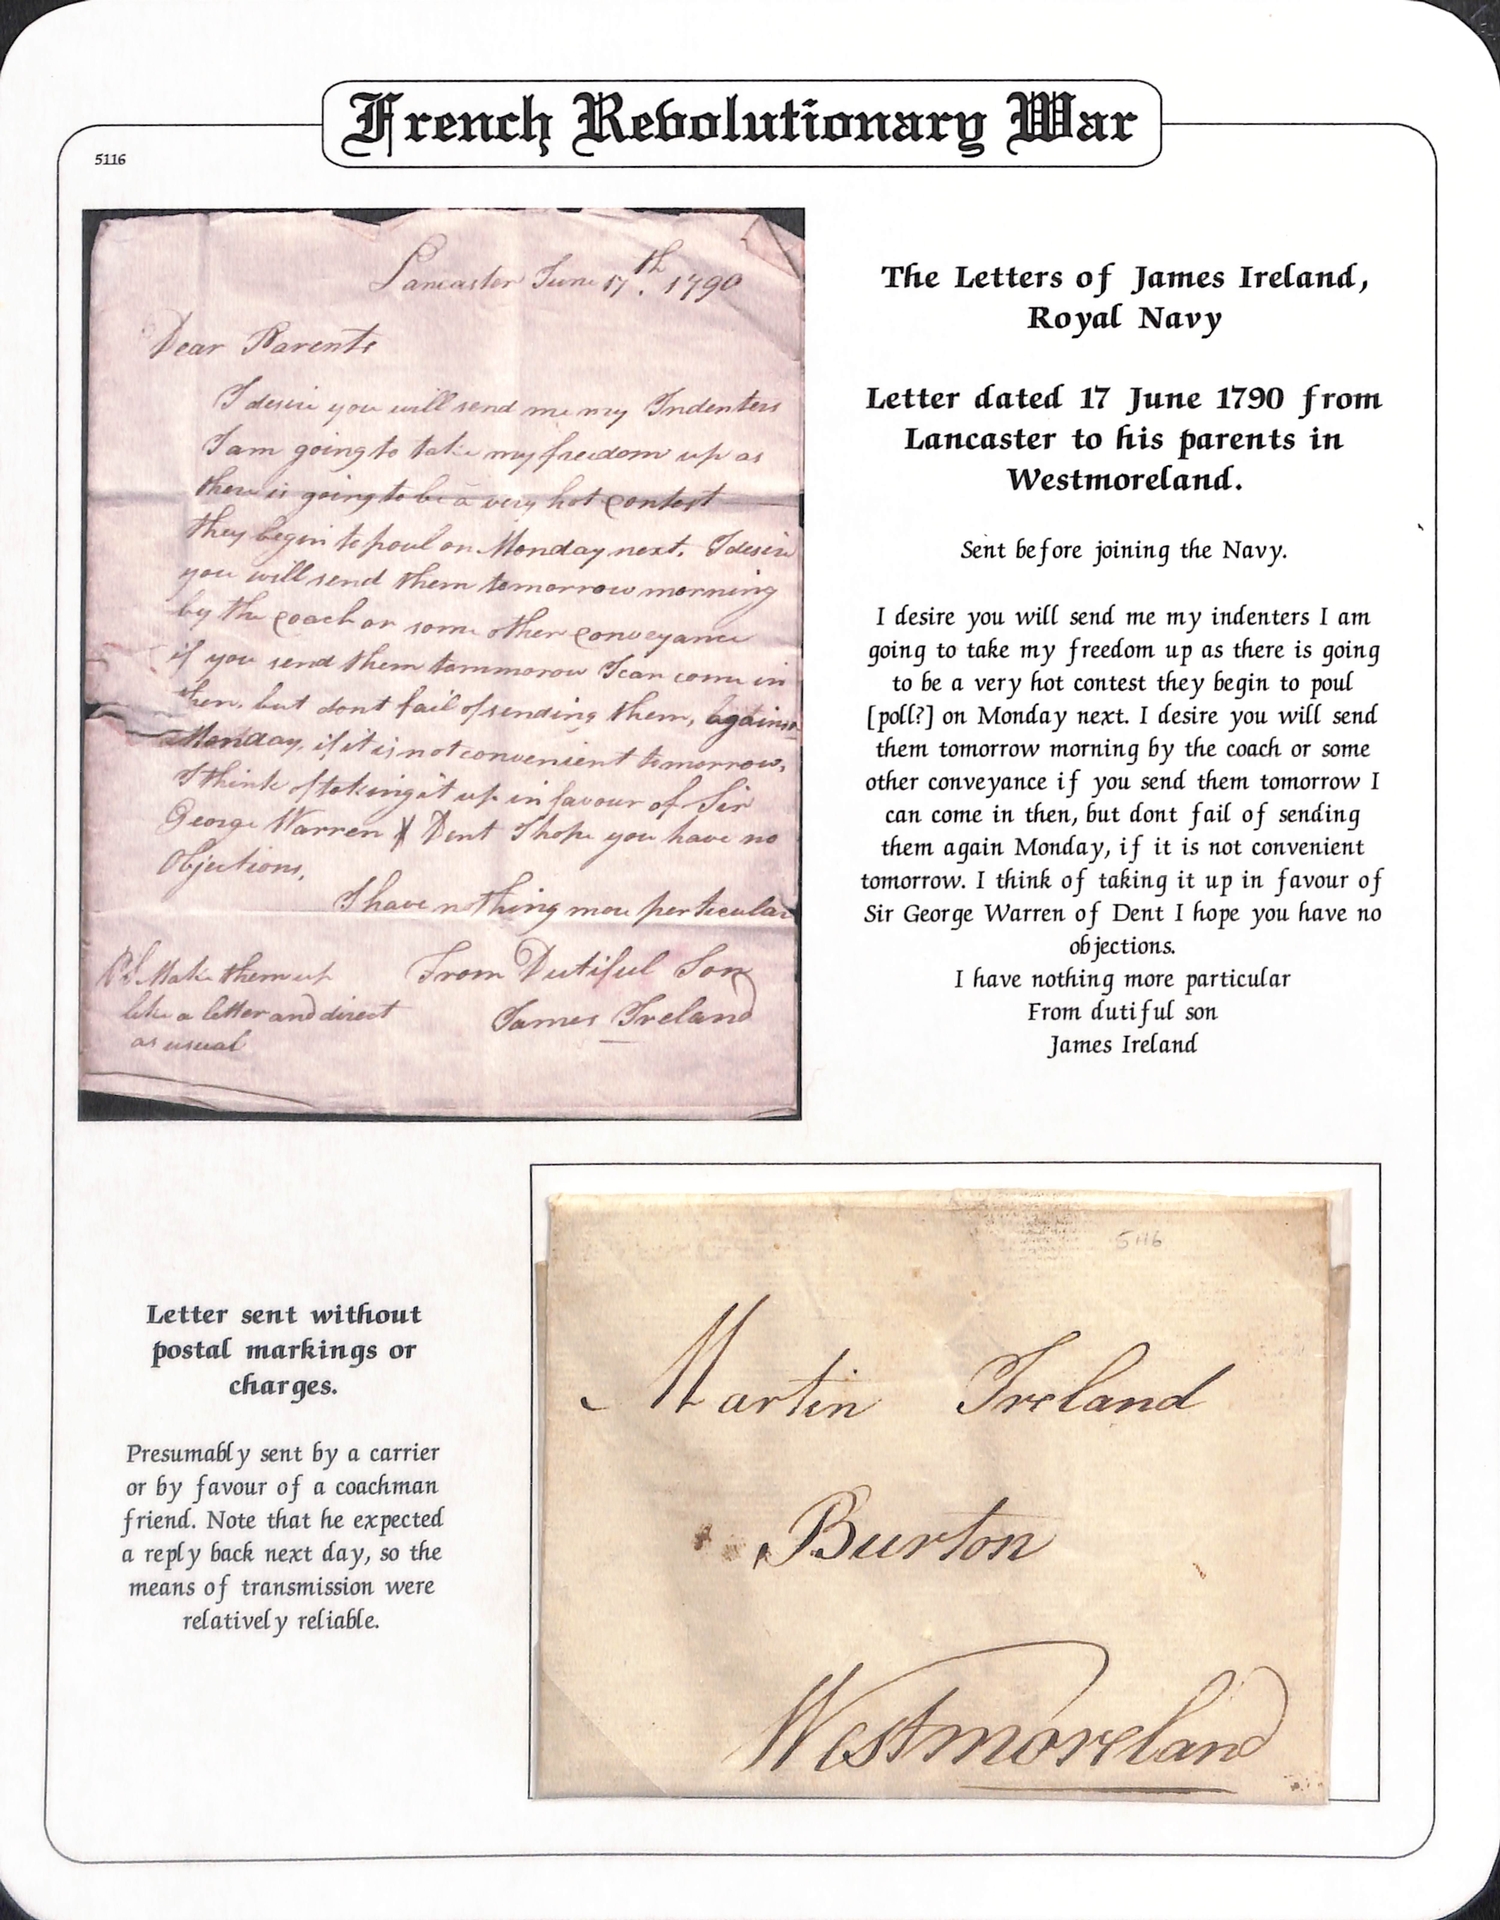 French Revolutionary War
5116
Lancaster June 17th. 1790
Dear Parents
I desire you will send me my Indenters
I am going to take my freedom up as
there is going to be a very hot Contest
they begin to poul on Monday next. I desire
you will send them tomorrow morning
by the Coach or some other Conveyance
if you send them tommorow I can come in
then, but dont fail of sending them, against
Monday, if it is not convenient tomorrow,
I think of taking it up in favour of Sir
George Warren & Dent I hope you have no
Objections.
I have nothing more perticular
From Dutiful Son
James Ireland
PS. Make them up
like a letter and direct
as usual
The Letters of James Ireland,
Royal Navy
Letter dated 17 June 1790 from
Lancaster to his parents in
Westmoreland.
Sent before joining the Navy.
I desire you will send me my indenters I am
going to take my freedom up as there is going
to be a very hot contest they begin to poul
[poll?] on Monday next. I desire you will send
them tomorrow morning by the coach or some
other conveyance if you send them tomorrow I
can come in then, but dont fail of sending
them again Monday, if it is not convenient
tomorrow. I think of taking it up in favour of
Sir George Warren of Dent I hope you have no
objections.
I have nothing more particular
From dutiful son
James Ireland
Letter sent without
postal markings or
charges.
Presumably sent by a carrier
or by favour of a coachman
friend. Note that he expected
a reply back next day, so the
means of transmission were
relatively reliable.
5116
Martin Ireland
Burton
Westmoreland